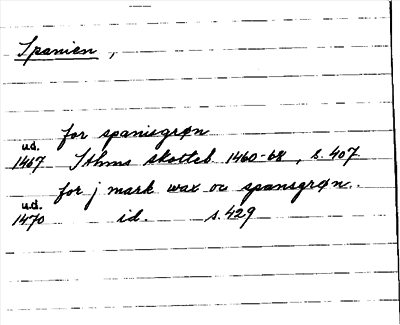 Spanien,
for spaniegrøn
ud.
1467 Sthms skotteb. 1460-68, s. 407
for j mark wax oc spansgrøn.
ud.
1470 id. s. 429